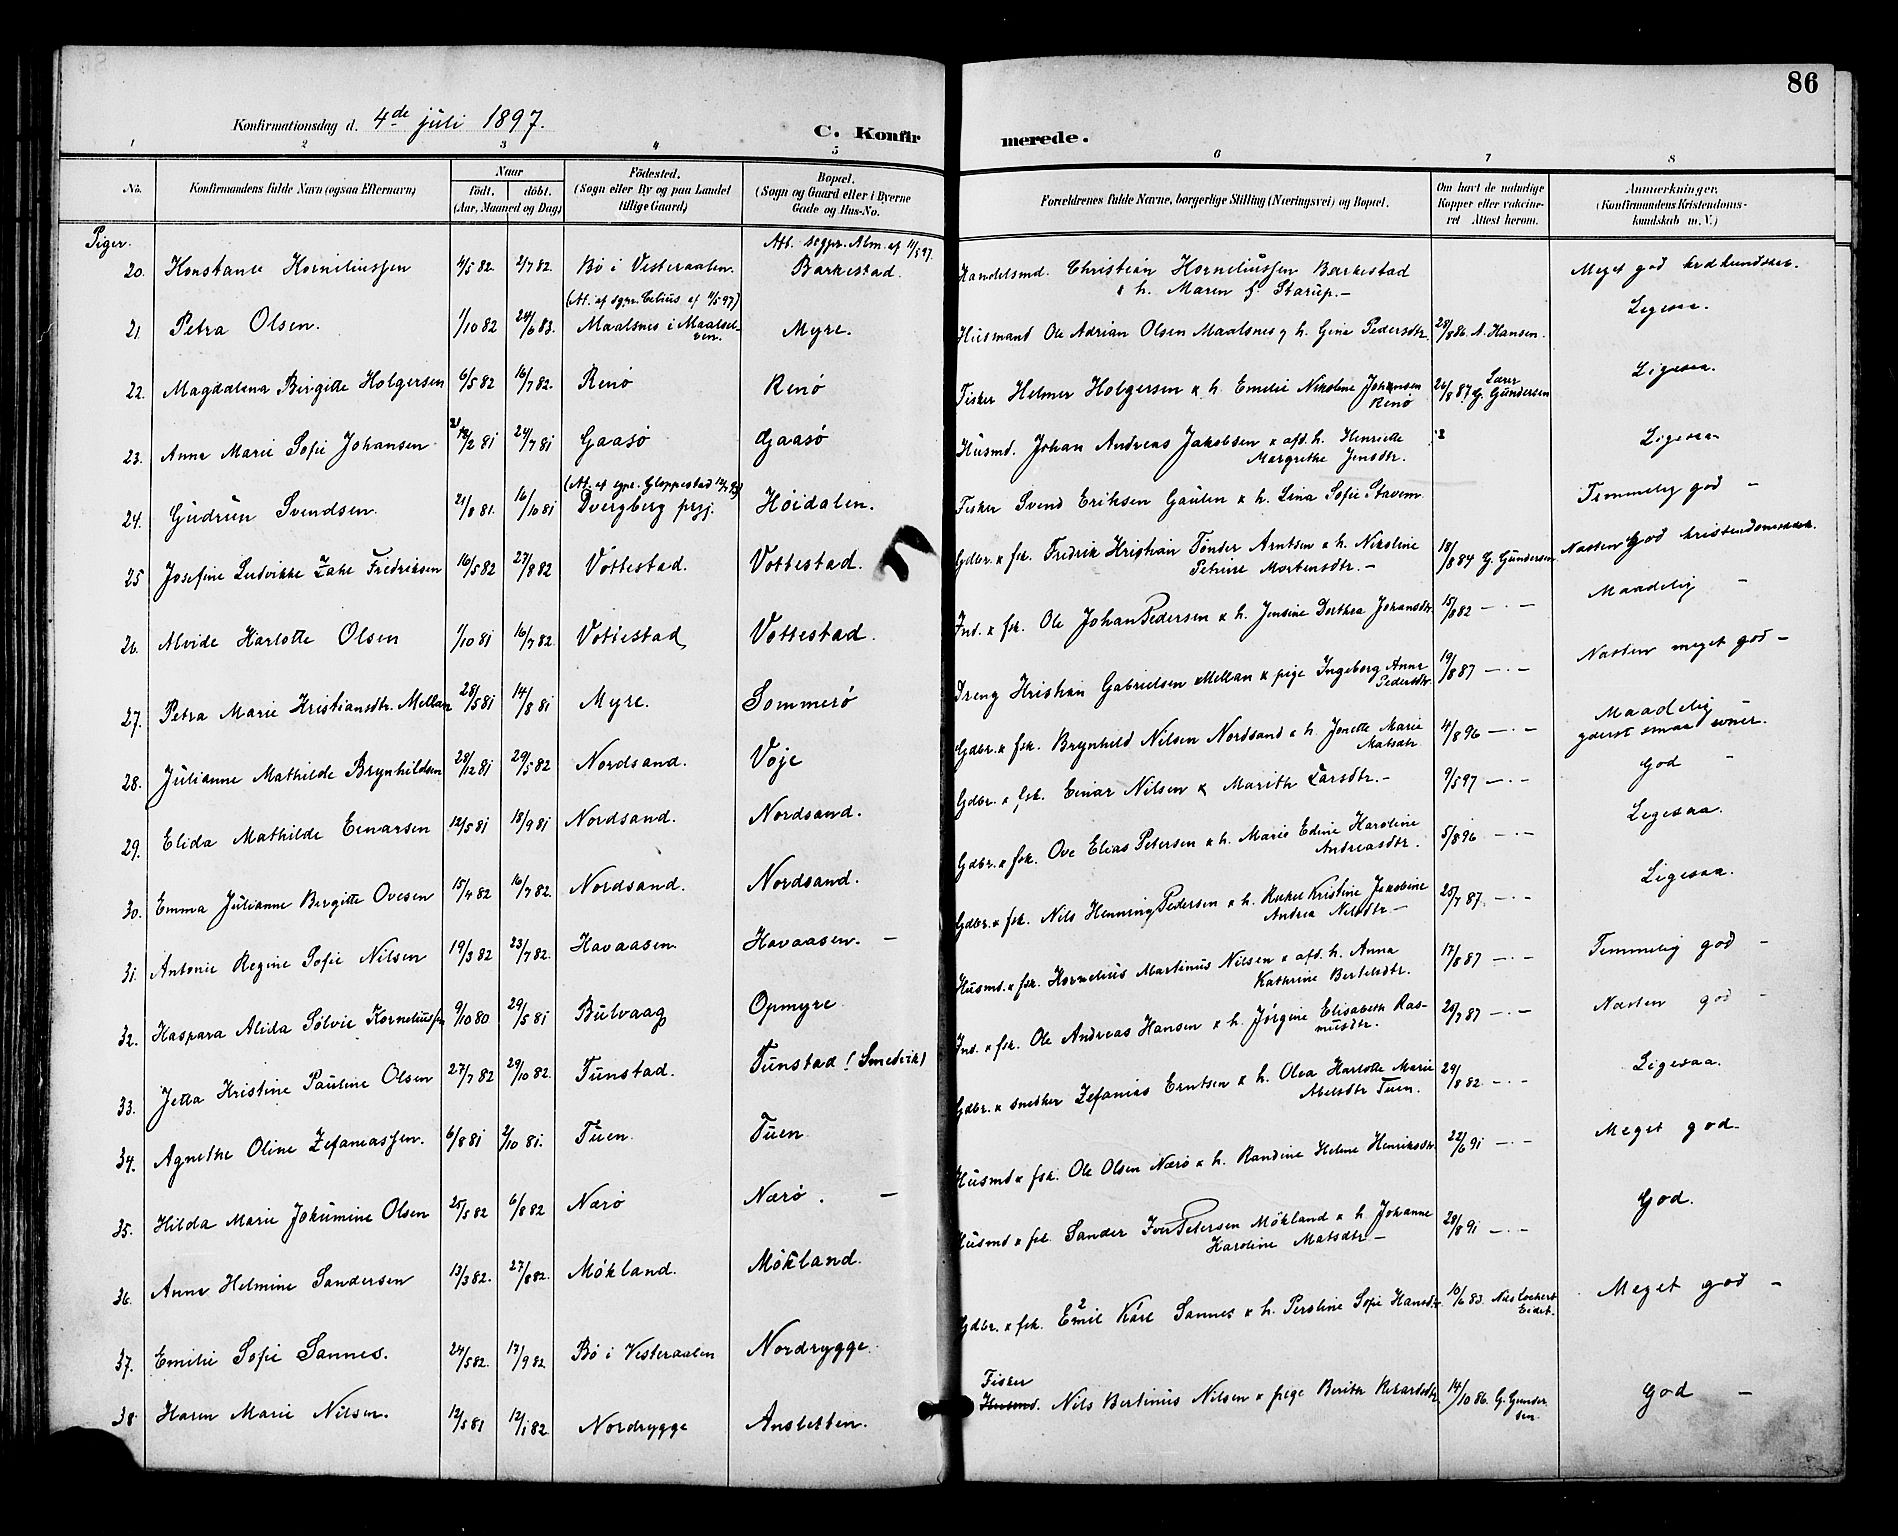 86
Konfirmationsdag d. 4de juli 1897.
C. Konfirmerede.
1 2 3 4 5 6 7 8
No. Konfirmandens fulde Navn (ogsaa Efternavn) Naar født, døbt. (Aar, Maaned og Dag) Fødested. (Sogn eller By og paa Landet tillige Gaard) Bopæl. (Sogn og Gaard eller i Byerne Gade og Hus-No. Forældrenes fulde Navne, borgerlige Stilling (Næringsvei) og Bopæl. Om havt de naturlige Kopper eller vaccineret Attest herom. Anmærkninger. (Konfirmandens Kristendomskundskab m. V.)
Piger.
Att. sogpr. Alm. af 11/5 97.
20. Konstanse Korneliussen 4/5 82. 2/7 82. Bø i Vesteraalen. Barkestad. Handelsmd. Christian Korneliussen Barkestad Meget god krdkundskab.
& h. Maren f. Starup.-
(At. af sgpr. Celius af 11/5 97)
21. Petra Olsen. 1/10 82 24/6 83. Maalsnes i Maalselven. Myre. Husmand Ole Adrian Olsen Maalsnes & h. Gina Pedersdtr. 28/8 86. A. Hansen. Ligesaa.
22. Magdalena Birgitte Holgersen 6/5 82 16/7 82. Renø Renø Fisker Helmer Holgersen & h. Emelie Nikoline Johansen Renø 26/8 87. Lærer G. Gundersen Ligesaa.
23. Anna Marie Sofie Johansen 2/81 24/7 81 Gaasø Gaasø Husmd. Johan Andreas Jakobsen & afd. h. Henriette Margrethe Jensdtr. Ligesaa
24. Gudrun Svendsen. 21/8 81. 16/10 81 Dvergberg prgj. Høidalen. Fisker Svend Eriksen Gaulen & h. Lina Sofie Stavem Temmelig god -
25 Josefine Ludvikke Zahl Fredriksen 16/5 82 27/8 82 Vottestad. Vottestad. Gdbr. & fsk. Fredrik Kristian Tønder Arntsen & h. Nikoline Petrine Mortensdtr.- 18/8 84 G. Gundersen. Næsten god kristendomskdsk.
26. Alvide Karlotte Olsen 1/10 81 16/7 82 Vottestad Vottestad. Ind. & fsk. Ole Johan Pedersen & h. Jensine Dorthea Johansdtr. 15/8 82 -.- Maadelig -
27. Petra Marie Kristiansdtr. Mellan 28/5 81 14/8 81 Myre. Sommerø Dreng Kristian Gabrielsen Mellan & pige Ingeborg Anna Pedersdtr 19/8 87 -.- Næsten meget god -
28. Julianne Mathilde Brynhildsen 28/12 81 29/5 82 Nordsand. Voje Gdbr. & fsk. Brynhild Nilsen Nordsand & h. Jonette Marie Matsdtr 4/8 96 -.- Maadelig yderst smaa evner.
29. Elida Mathilde Einarsen 12/5 81 18/9 81 Nordsand. Nordsand. Gdbr. & fsk. Einar Nilsen & Marith Larsdtr.- 9/5 97 -.- God -
30. Emma Julianne Birgitte Ovesen 15/4 82 16/7 82. Nordsand. Nordsand. Gdbr. & fsk. Ove Elias Petersen & h. Marie Edine Karoline Andreasdtr. 5/8 96 -.- Ligesaa.
31. Antonie Regine Sofie Nilsen 19/3 82 23/7 82. Havaasen. Havaasen. - Gdbr. & fsk. Nils Henning Pedersen & h. Rakel Kristine Jakobine Andrea Nilsdtr - 25/7 87. -.- Ligesaa.
32. Kaspara Alida Sølvie Korneliussen 9/10 80 29/5 81 Bulvaag Opmyre. Husmd. & fsk. Kornelius Martinus Nilsen & afd. h. Anna Kathrine Bertelsdtr. 17/8 87 -.- Temmelig god -
33. Jetta Kristine Pauline Olsen 27/7 82 29/10 82. Tunstad. Tunstad (Smedvik) Ind. & fsk. Ole Andreas Hansen & h. Jørgine Elisabeth Rasmusdtr. 25/7 87 -.- Næsten god -
34. Agnethe Oline Zefaniassen. 6/8 81 2/10 81. Tuen. Tuen Gdbr. & snedker Zefanias Erntsen & h. Olea Karlotte Marie Abelsdtr Tuen. 29/8 82 -.- Ligesaa.
35. Hilda Marie Jokumine Olsen 25/5 82 6/8 82 Nærø Nærø. - Husmd & fsk. Ole Olsen Nærø & h. Randine Helene Henriksdtr 22/6 91 -.- Meget god.
36. Anna Helmine Sandersen 13/3 82. 27/8 82. Møkland. Møkland. Husmd & fsk. Sander Iver Petersen Møkland & h. Johanne Karoline Matsdtr - 28/8 91 -.- God.
37. Emilie Sofie Sannes. 24/5 82. 17/9 82 Bø i Vesteraalen Nordrygge. Gdbr. & fsk. Emil Karl Sannes & h. Peroline Sofie Hansdtr 10/6 83. Nils Lockert Eidet. Meget god -
38 Karen Marie Nilsen. 12/5 81 12/1 82 Nordrygge Ansletten. Fisker Husmd. Nils Bertinus Nilsen & pige Berith Rikartsdtr 14/10 86. G. Gundersen. God -